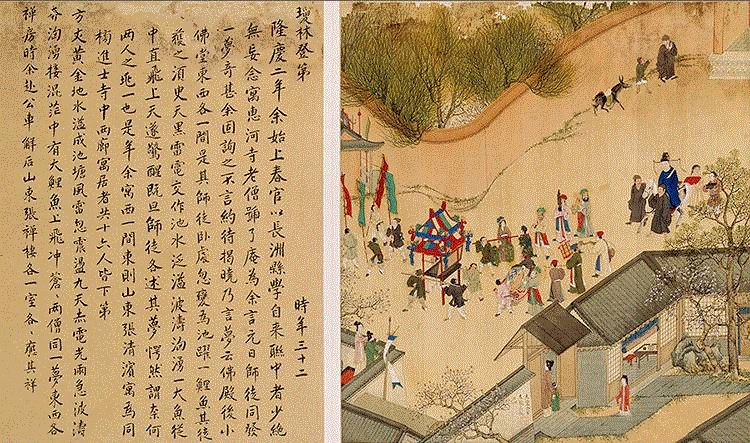 瓊林登第
時年三十二
隆慶二年余始上春官以長洲縣學自來聯中者少絶
無妄念寓惠河寺老僧號了庵為余言元日師徒同發
一夢奇甚余因詢之不言約待揭曉乃言夢云佛殿後小
佛堂東西各一間是其師徒卧處忽甃為池躍一鯉魚其徒
發之須臾天黑雷電交作池水泛溢波濤洶湧一大魚從
中直飛上天遂驚醒既旦師徒各述其夢愕然謂奈何
兩人之兆一也是年余寓西一間東則山東張清濱寓為同
榜進士寺中兩廊寓居者共十六人皆下第
方丈黃金地水溢成池塘風雷忽震盪九天走電光雨急波濤
奔洶湧接混茫中有大鯉魚上飛冲蒼〻兩僧同一夢東西各
禪房時余赴公車解后山東張祥樓各一室各〻應其祥